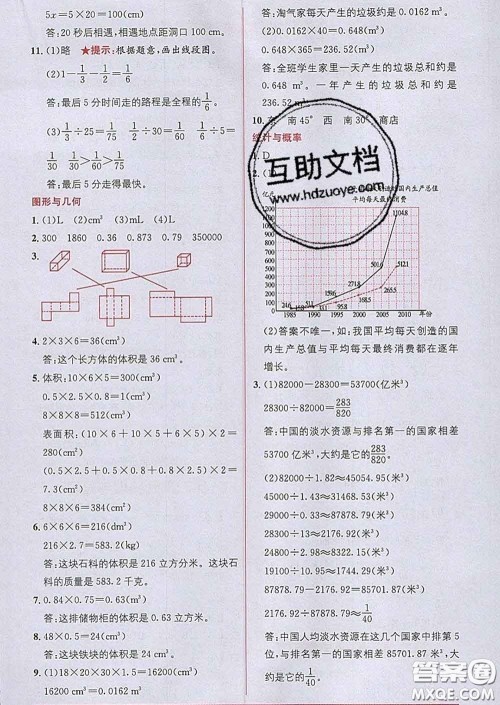 5x=5×20=100(cm)
答:20 秒后相遇,相遇地点距洞口 100 cm。
11. (1)略 ★提示:根据题意,画出线段图。
(2)1-1/3-1/2=1/6
答:最后 5 分钟走的路程是全程的1/6。
(3)1/3÷25=1/75 1/2÷30=1/60 1/6÷5=
1/30 1/30>1/60>1/75
答:最后 5 分走得最快。
图形与几何
1. (1)L (2)cm³ (3)mL (4)L
2. 300 1860 0.36 0.73 350000
3.
4. 2×3×6=36(cm³)
答:这个长方体的体积是 36 cm³。
5. 体积:10×6×5=300(cm³)
0.5×2.5×0.8=1(cm³)
8×8×8=512(cm³)
表面积:(10×6+10×5+6×5)×2=
280(cm²)
(0.5×2.5+0.5×0.8+2.5×0.8)×2
=7.3(cm²)
8×8×6=384(cm²)
6. 6×6×6=216(dm³)
216×2.7=583.2(kg)
答:这块石料的体积是 216 立方分米。这块石
料的质量是 583.2 千克。
7. 0.84×0.75=0.63(m³)
答:这排储物柜的体积是 0.63 立方米。
8. 48×0.5=24(cm³)
答:这块铁块的体积是 24 cm³。
9. (1)18×20×30×1.5=16200(cm³)
16200 cm³=0.0162 m³
答:淘气家每天产生的垃圾约是 0.0162 m³。
(2)0.0162×40=0.648(m³)
0.648×365=236.52(m³)
答:全班学生家里一天产生的垃圾总和约是
0.648 m³,一年产生的垃圾总和约是
236.52 m³。
10. 东 南 45° 西 南 30° 商店
统计与概率
1. D
2. (1)
国内生产总值
平均每天最终消费
亿元
1104.8
501.6
512.1
271.8
265.5
168.5
95.8
24.6
15.8
1985 1990 1995 2000 2005 2010 年份
互助文档
www.hdzuoye.com
(2)答案不唯一,如:我国平均每天创造的国
内生产总值与平均每天最终消费都在逐年
增长。
3. (1)82000-28300=53700(亿米³)
28300÷82000=283/820
答:中国的淡水资源与排名第一的国家相差
53700 亿米³,大约是它的283/820。
(2)82000÷1.82≈45054.95(米³)
45000÷1.43≈31468.53(米³)
29000÷0.33≈87878.79(米³)
28000÷2.57≈10894.94(米³)
28300÷13≈2176.92(米³)
24800÷3.04≈8157.89(米³)
19100÷0.49≈38979.59(米³)
87878.79-2176.92≈85701.87(米³)
2176.92÷87878.79≈1/40
答:中国人均淡水资源在这几个国家中排第 5
位,与排名第一的国家相差 85701.87 米³,大
约是它的1/40。
答案圈
MXQE.COM